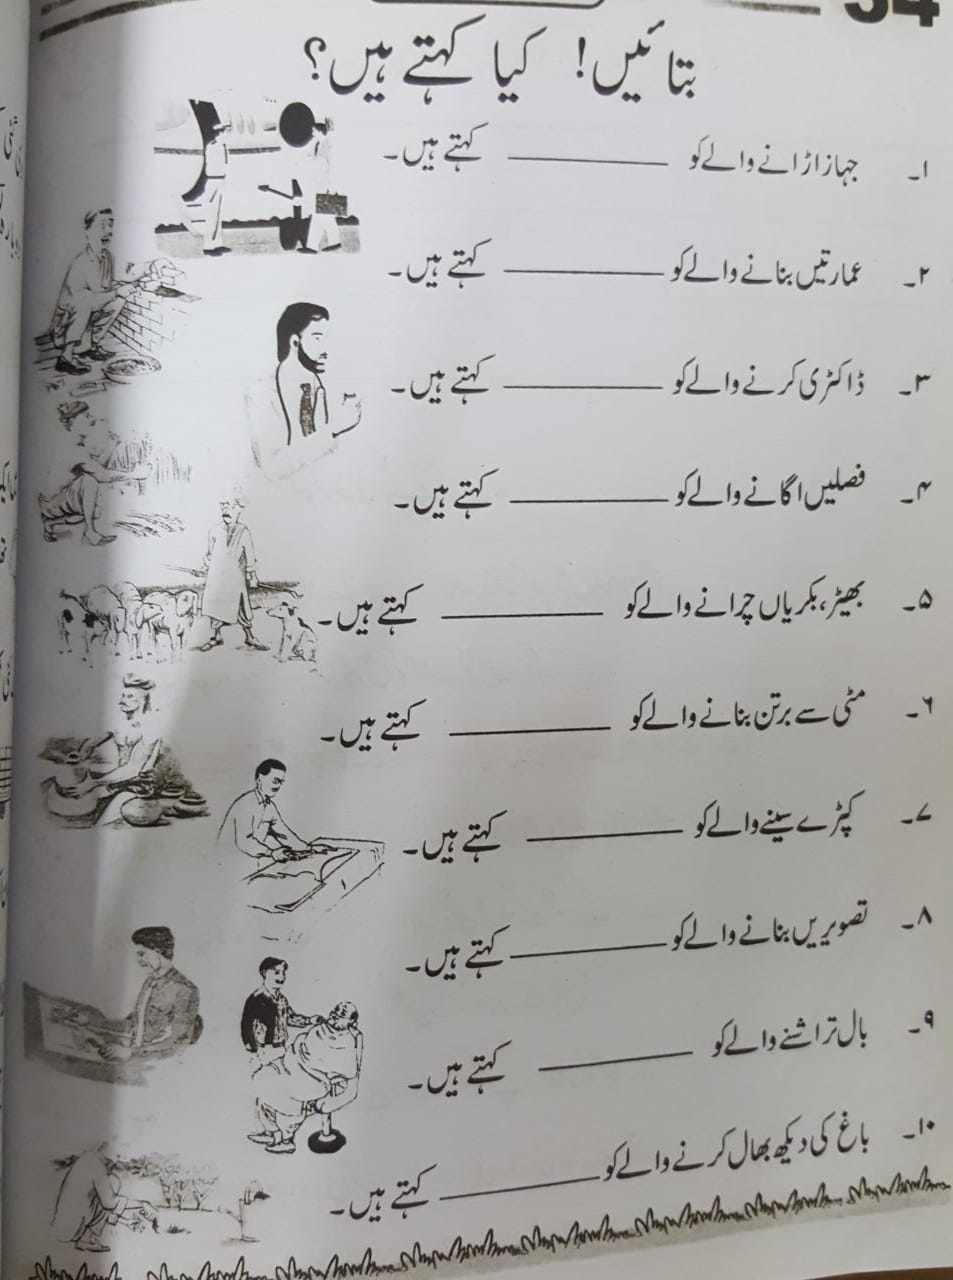 34
بتائیں! کیا کہتے ہیں؟
۱۔ جہاز اڑانے والے کو ________ کہتے ہیں۔
۲۔ عمارتیں بنانے والے کو ________ کہتے ہیں۔
۳۔ ڈاکٹری کرنے والے کو ________ کہتے ہیں۔
۴۔ فصلیں اگانے والے کو ________ کہتے ہیں۔
۵۔ بھیڑ، بکریاں چرانے والے کو ________ کہتے ہیں۔
۶۔ مٹی سے برتن بنانے والے کو ________ کہتے ہیں۔
۷۔ کپڑے سینے والے کو ________ کہتے ہیں۔
۸۔ تصویریں بنانے والے کو ________ کہتے ہیں۔
۹۔ بال تراشنے والے کو ________ کہتے ہیں۔
۱۰۔ باغ کی دیکھ بھال کرنے والے کو ________ کہتے ہیں۔